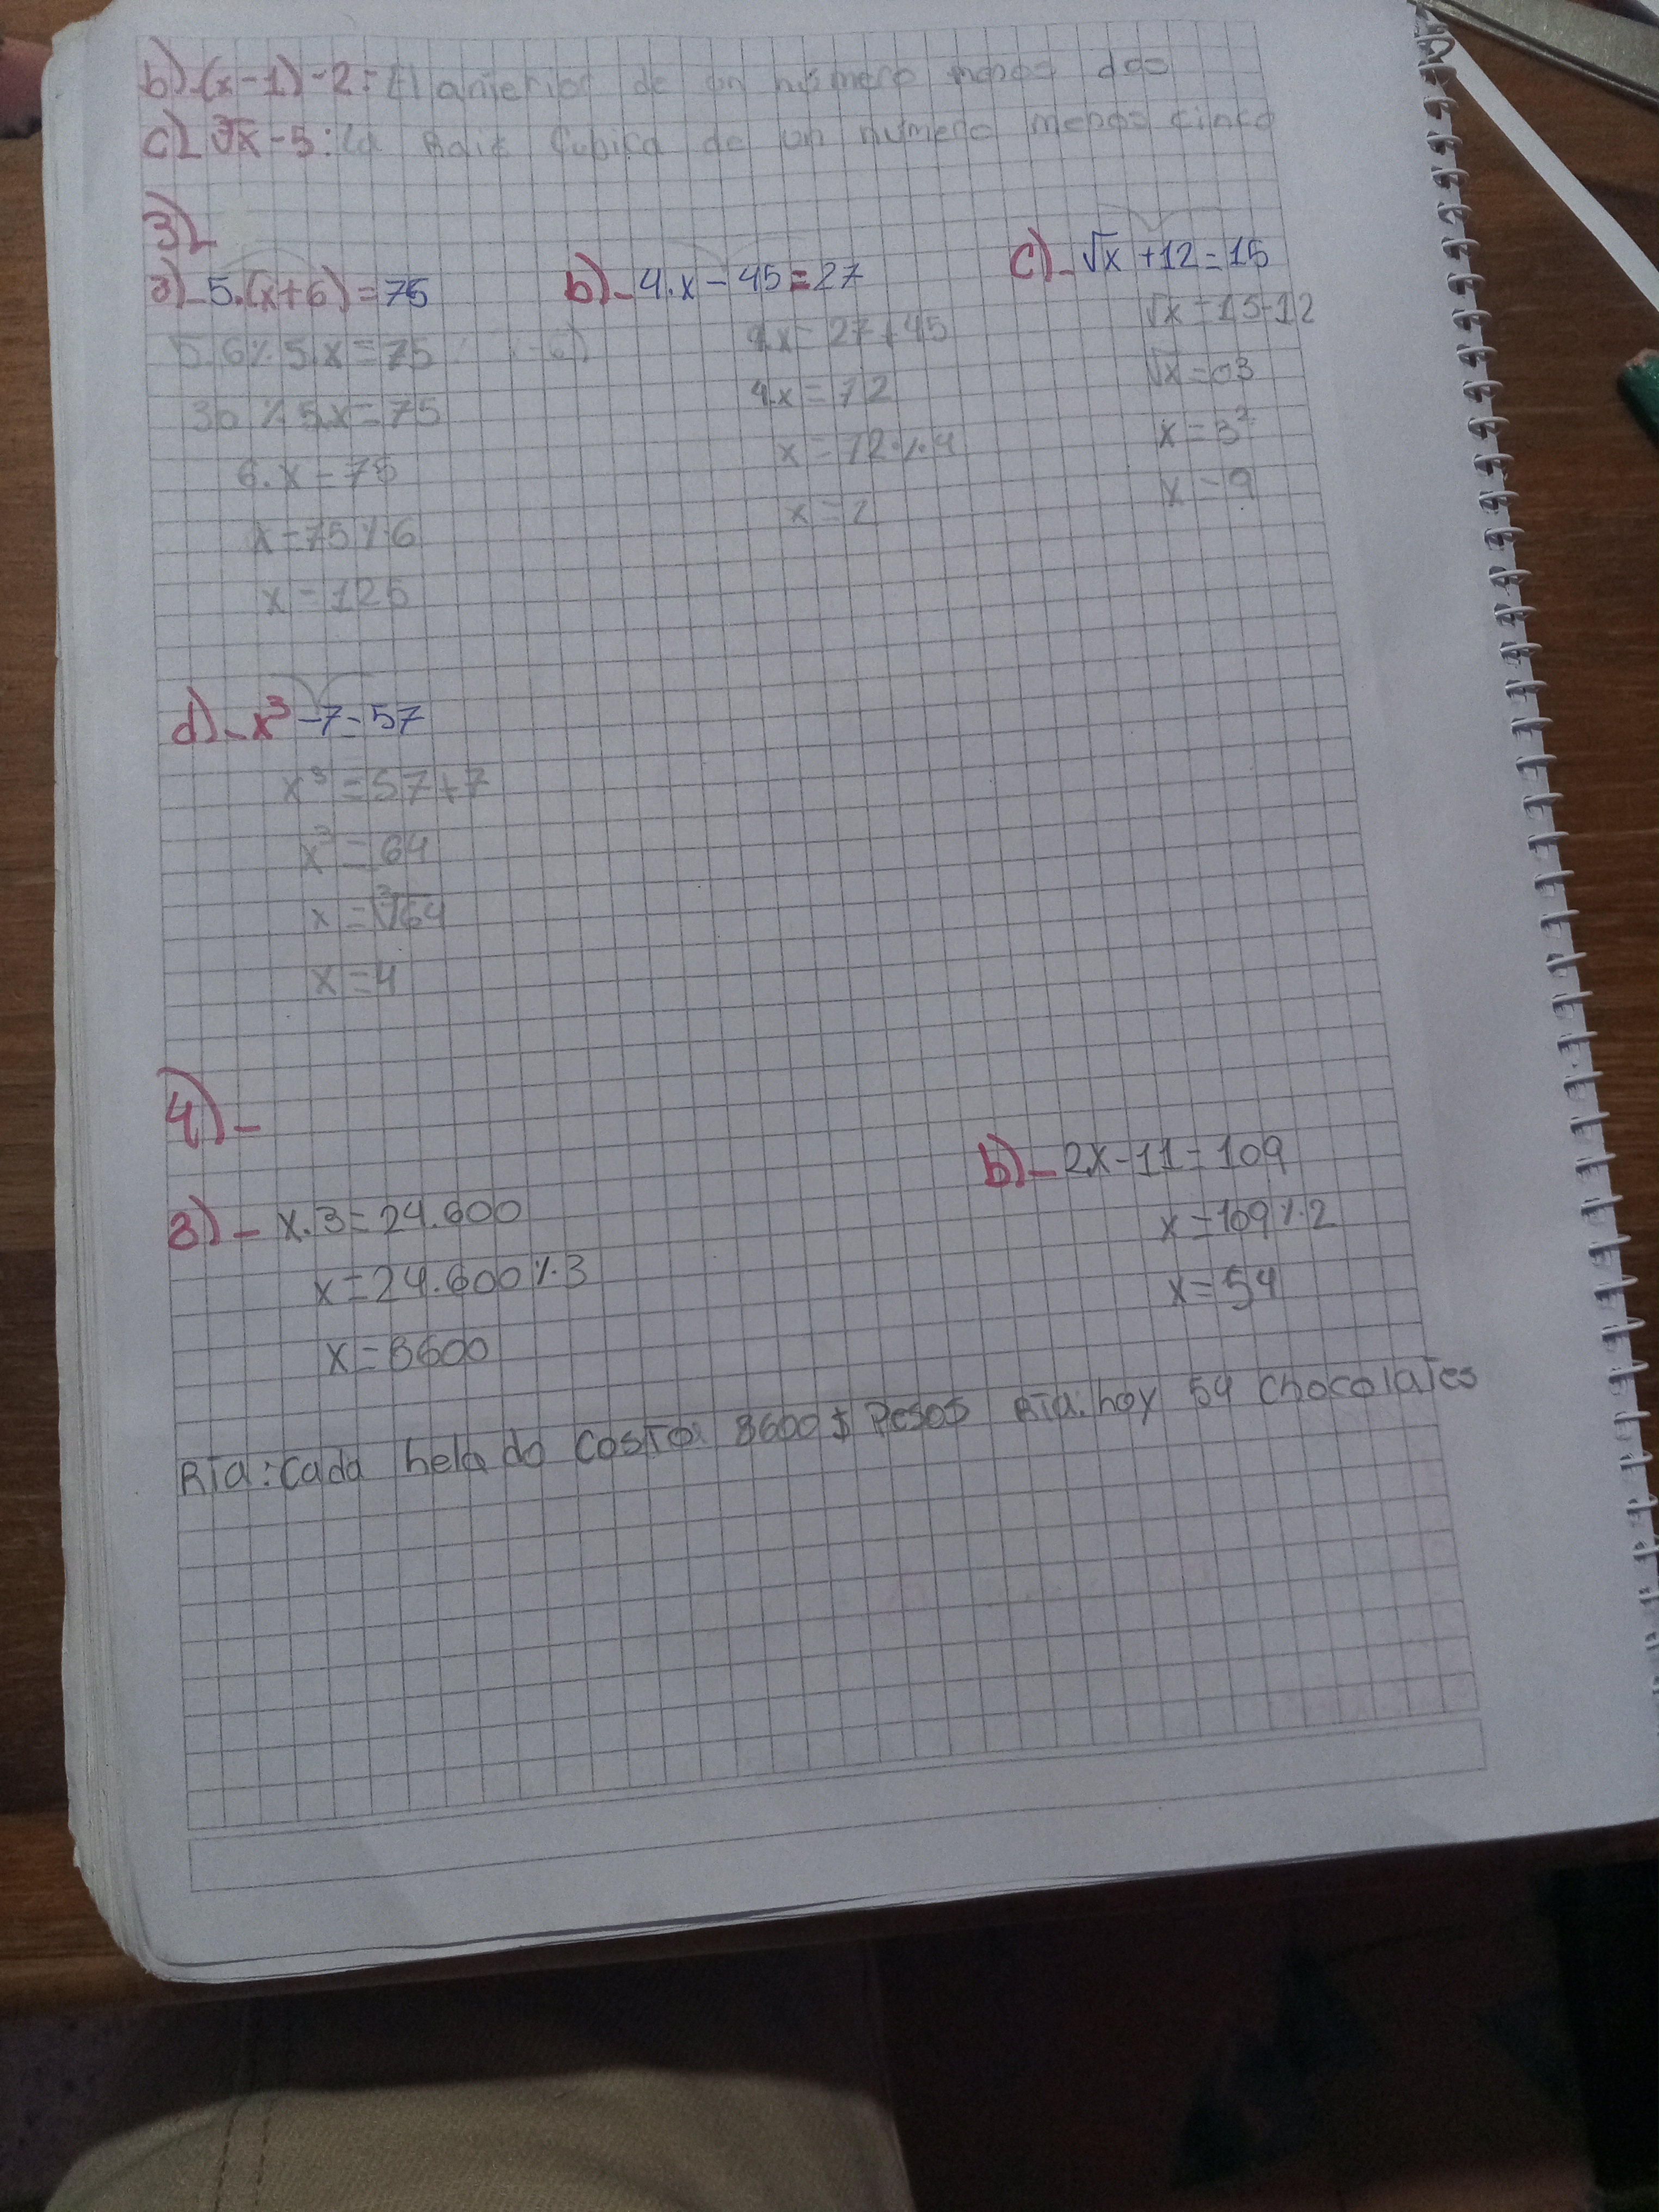 b)-(x-1)-2: El anterior de un número menos dos
c)- ∛x-5: la Raiz Cubica de un numero menos cinco
3)-
a)-5.(x+6)=75
5.6%5.x=75
30%5.x=75
6.x=75
x=75%6
x=125
b)-4.x-45=27
4.x=27+45
4x=72
x=72%4
x=2
c)-√x+12=15
√x=15-12
√x=03
x=3²
x=9
d)-x³-7=57
x³=57+7
x³=64
x=∛64
x=4
4)-
a)-x.3=24.600
x=24.600%3
x=8600
RTa:Cada helado CosTo: 8600$ Pesos
b)-2x-11=109
x=109%2
x=54
RTa:hay 54 chocolaTes